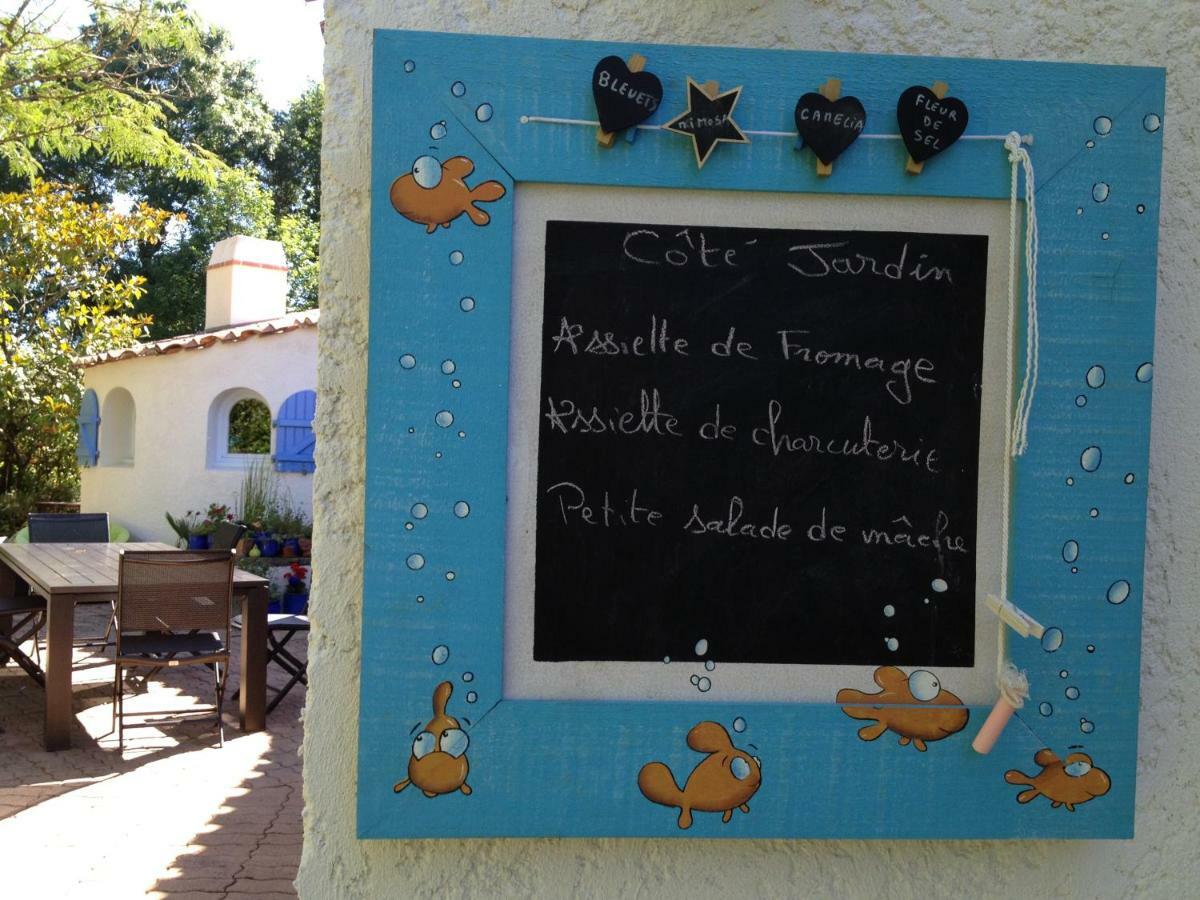 BLEUETS
MIMOSA
CAMELIA
FLEUR
DE
SEL
Côté Jardin
Assiette de Fromage
Assiette de charcuterie
Petite salade de mâche